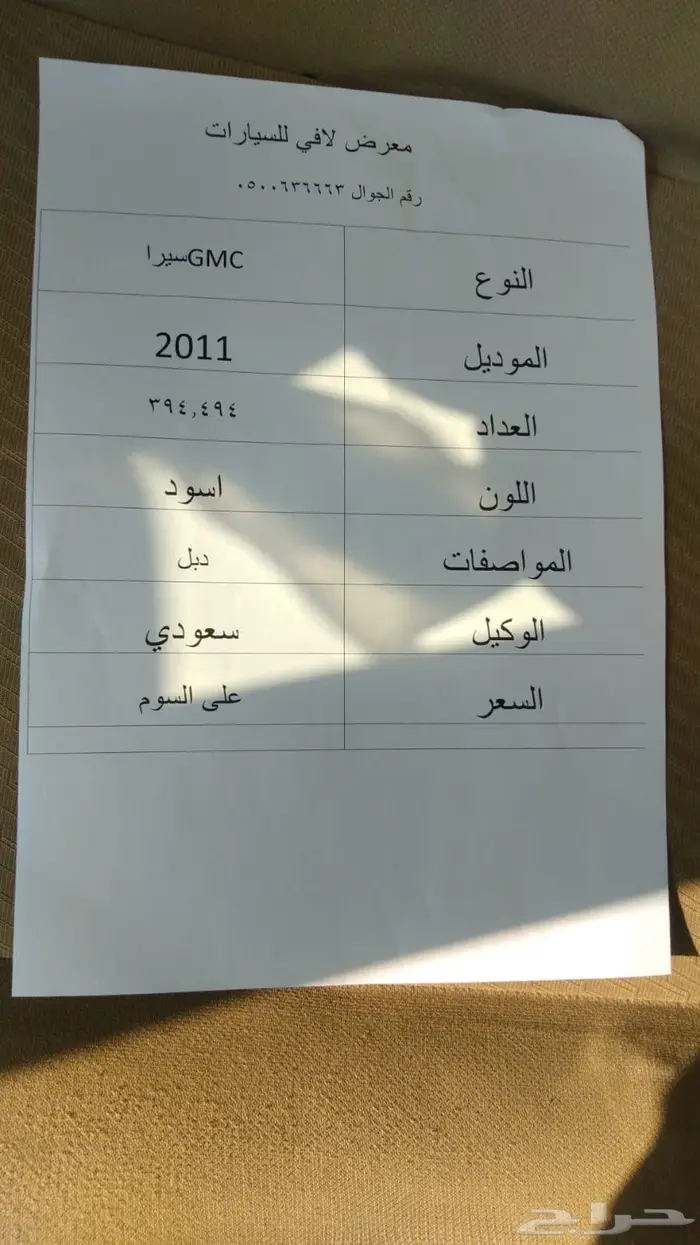 معرض لافي للسيارات
رقم الجوال ٠٥٠٠٦٣٦٦٦٣
النوع GMCسيرا
الموديل 2011
العداد ٣٩٤,٤٩٤
اللون اسود
المواصفات دبل
الوكيل سعودي
السعر على السوم
حراج